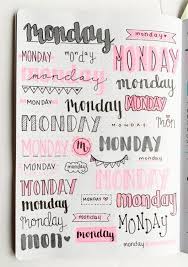 monday
monday
MONDAY
MONDAY
monday
MONDAY
monday
MONDAY
monday
monday
MONDAY
monday
MONDAY
MONDAY
MONDAY
mon
MONDAY
M
MONDAY
monday
MONDAY
MONDAY
monday
monday
MONDAY
monday
MONDAY
mon
monday
monday